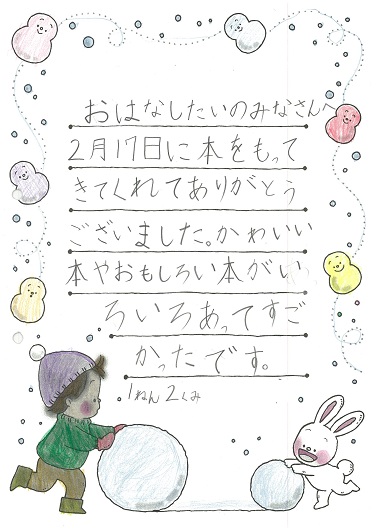 おはなしたいのみなさんへ
2月17日に本をもって
きてくれてありがとう
ございました。かわいい
本やおもしろい本がい
ろいろあってすご
かったです。
1ねん2くみ